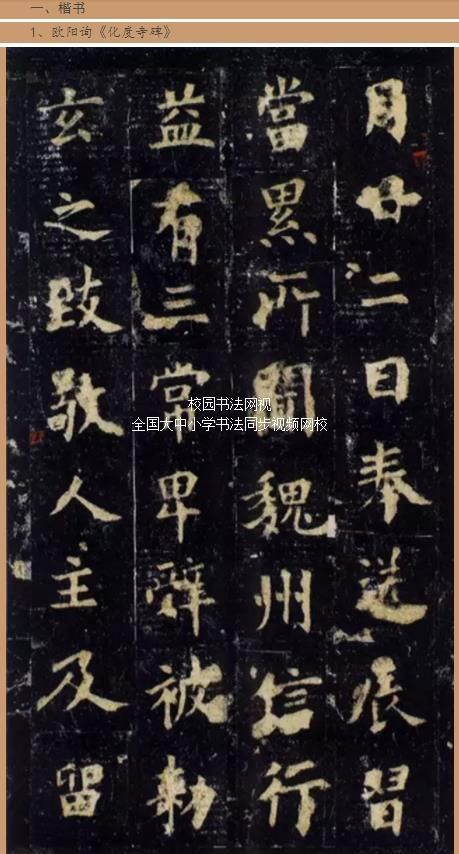 一、楷书
1、欧阳询《化度寺碑》
月廿二日奉送展習
當累所聞魏州信行
益有三常卑辭被勑
玄之跂敬人主及留
校园书法网视
全国大中小学书法同步视频网校